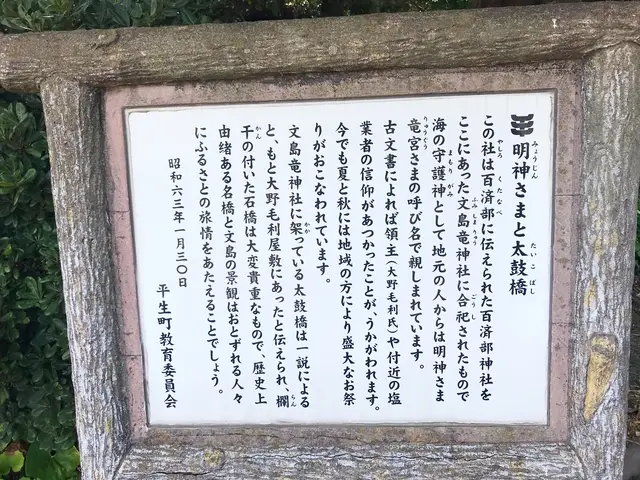 明神さまと太鼓橋
この社は百済部に伝えられた百済部神社を
ここにあった文島竜神社に合祀されたもので
海の守護神として地元の人からは明神さま
竜宮さまの呼び名で親しまれています。
古文書によれば領主(大野毛利氏)や付近の塩
業者の信仰があつかったことが、うかがわれます。
今でも夏と秋には地域の方により盛大なお祭
りがおこなわれています。
文島竜神社に架っている太鼓橋は一説による
と、もと大野毛利屋敷にあったと伝えられ、欄
干の付いた石橋は大変貴重なもので、歴史上
由緒ある名橋と文島の景観はおとずれる人々
にふるさとの旅情をあたえることでしょう。
昭和六三年一月三〇日
平生町教育委員会